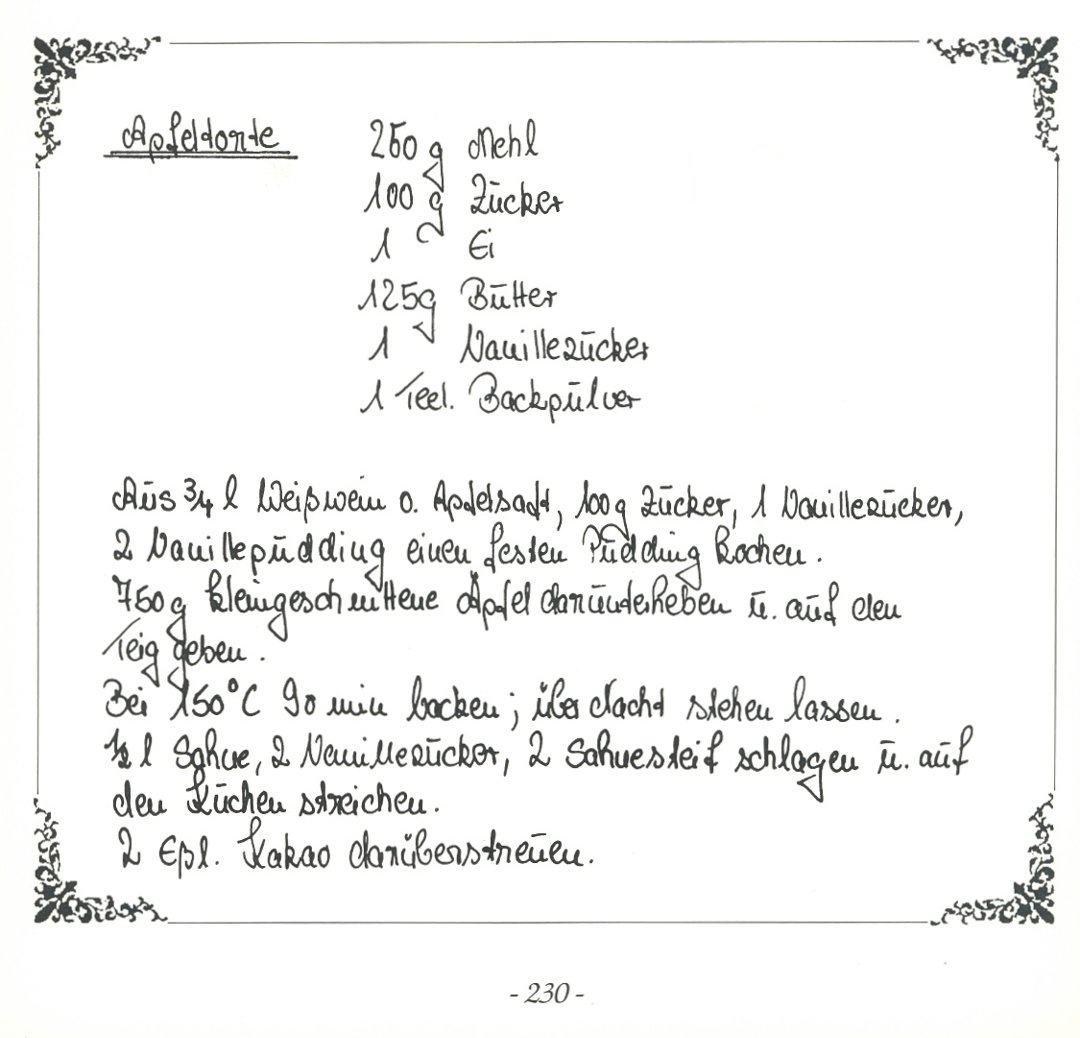 Apfeltorte 250 g Mehl
100 g Zucker
1 Ei
125g Butter
1 Vanillezucker
1 Teel. Backpulver
Aus 3/4 l Weißwein o. Apfelsaft, 100g Zucker, 1 Vanillezucker,
2 Vanillepudding einen festen Pudding kochen.
750 g kleingeschnittene Äpfel darunterheben u. auf den
Teig geben.
Bei 150°C 90 min backen; über Nacht stehen lassen.
1/2 l Sahne, 2 Vanillezucker, 2 Sahnesteif schlagen u. auf
den Kuchen streichen.
2 Eßl. Kakao darüberstreuen.
- 230 -